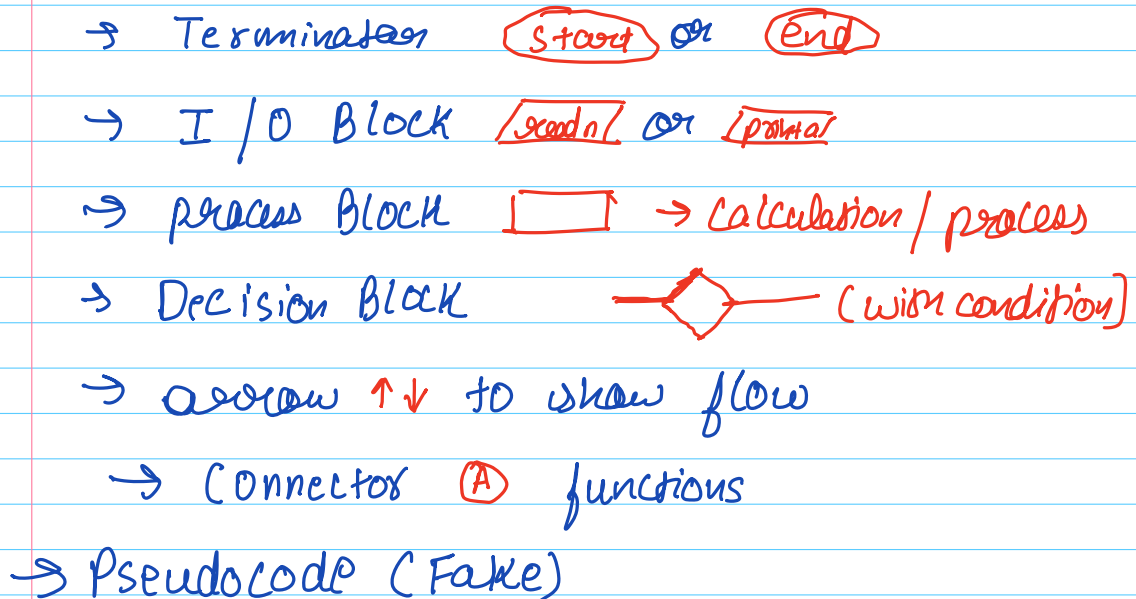 → Terminator start or end
→ I/O Block read n or print a
→ process Block → calculation/process
→ Decision Block (with condition)
→ arrow ↑↓ to show flow
→ Connector A functions
→ Pseudocode (Fake)